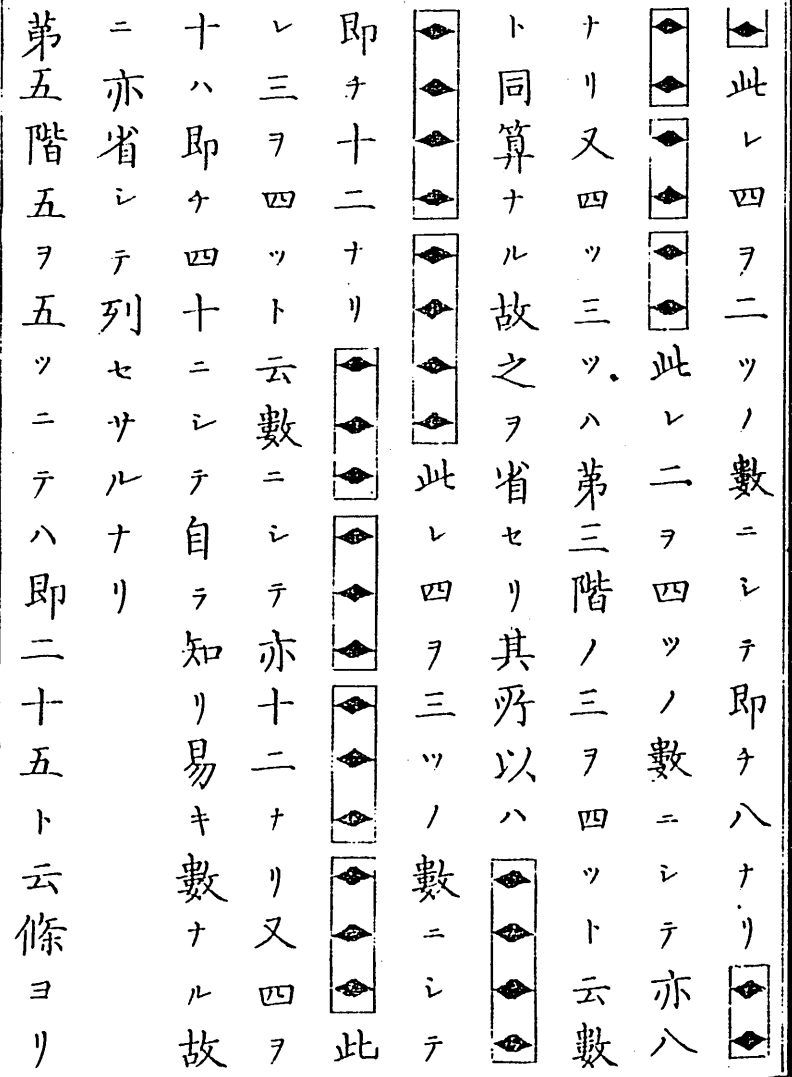 此レ四ヲ二ツノ數ニシテ即チ八ナリ
此レ二ヲ四ツノ數ニシテ亦八
ナリ又四ツ三ツハ第三階ノ三ヲ四ツト云數
ト同算ナル故之ヲ省セリ其所以ハ
此レ四ヲ三ツノ數ニシテ
即チ十二ナリ此
レ三ヲ四ツト云數ニシテ亦十二ナリ又四ヲ
十ハ即チ四十ニシテ自ラ知リ易キ數ナル故
ニ亦省シテ列セサルナリ
第五階五ヲ五ツニテハ即二十五ト云條ヨリ